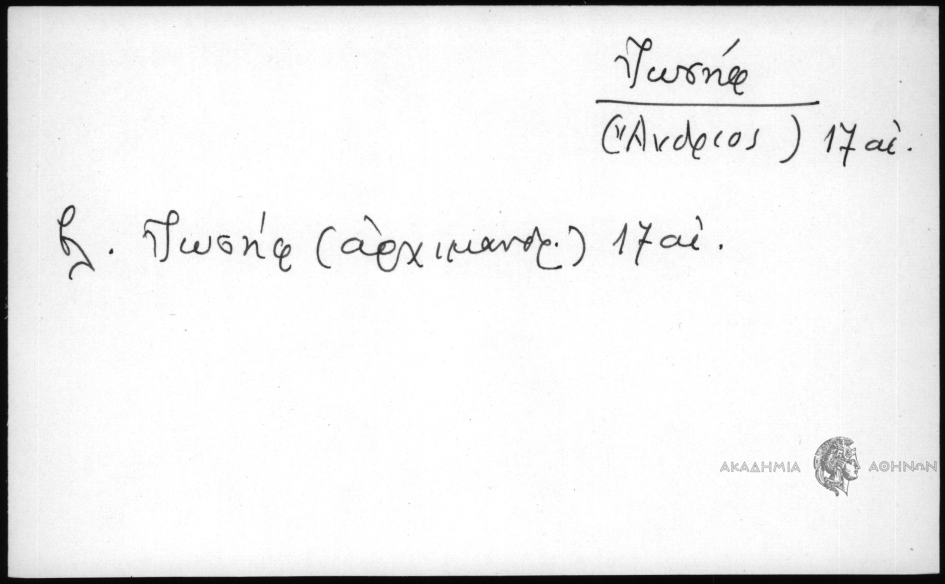 Ἰωσήφ
(Ἄνδριος) 17 αἰ.
βλ. Ἰωσήφ (ἀρχιμανδρ.) 17 αἰ.
ΑΚΑΔΗΜΙΑ ΑΘΗΝΩΝ